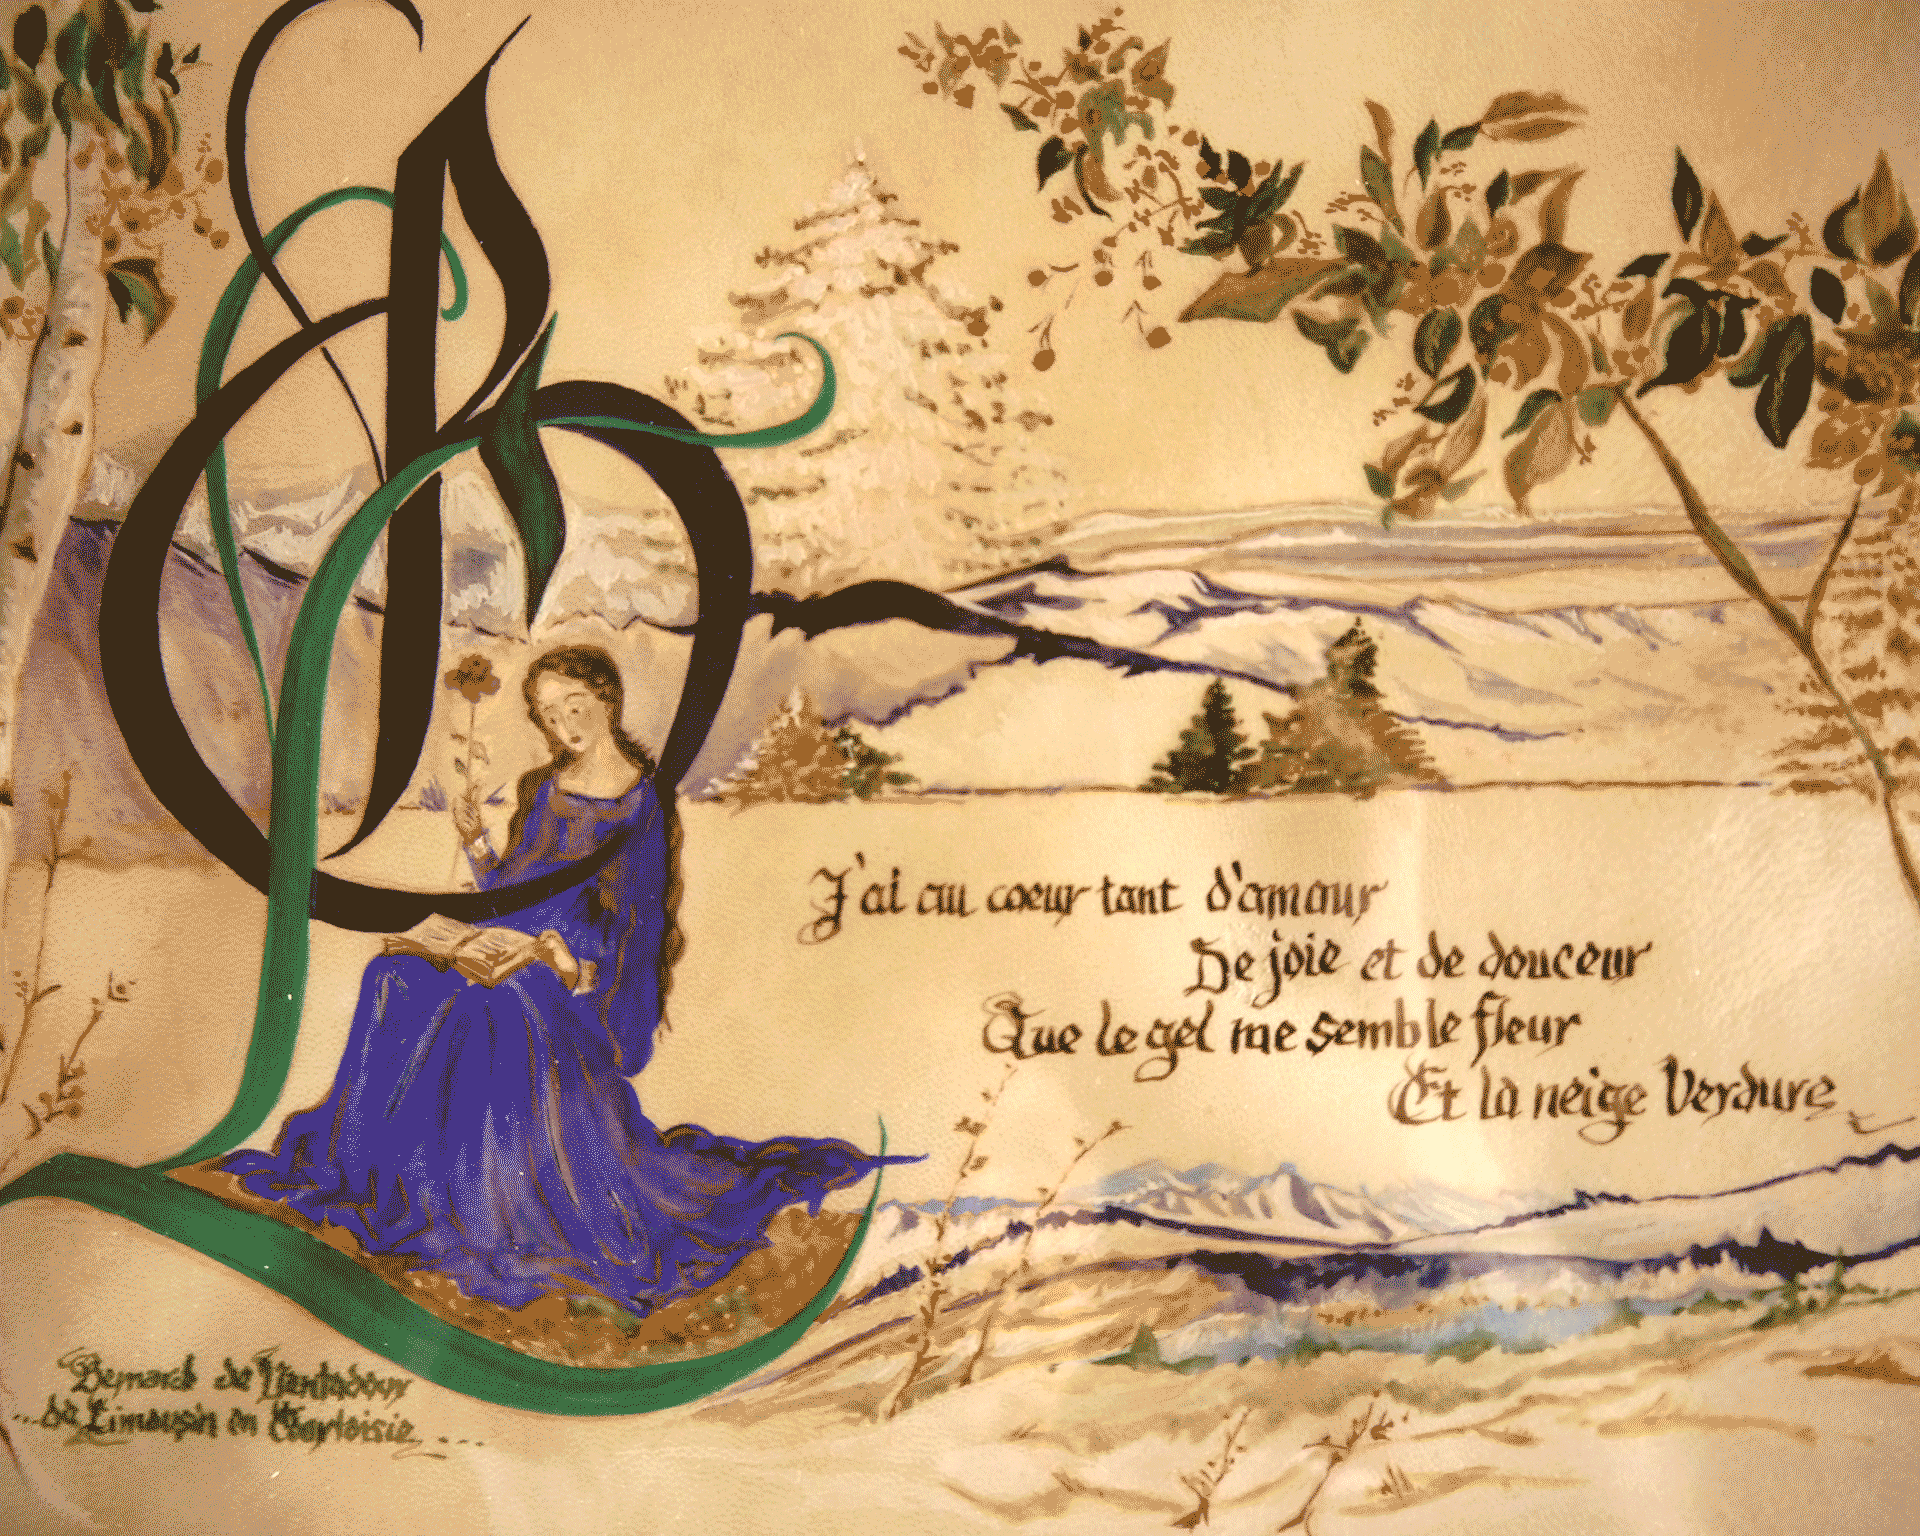 J'ai au coeur tant d'amour
De joie et de douceur
Que le gel me semble fleur
Et la neige Verdure
Bernard de Ventadour
...de Limousin en Courtoisie...